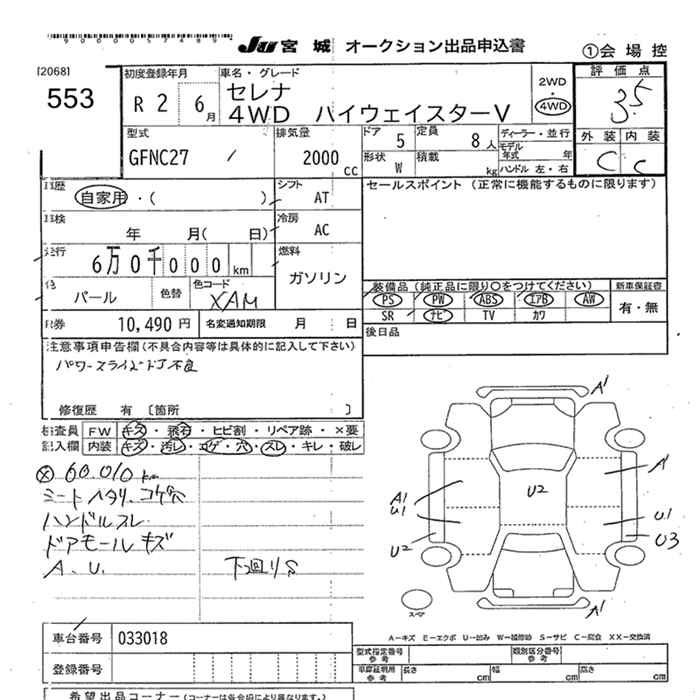 900005/489
JU 宮城 オークション出品申込書 ①会場控
[2068]
553
初度登録年月
R2 6月
車名・グレード
セレナ
4WD ハイウェイスターV
2WD
4WD
評価点
3.5
外装 内装
C C
型式
GFNC27
排気量
2000 cc
ドア 5
定員 8人
形状 W
積載 kg
ディーラー・並行
モデル年式 年
ハンドル 左・右
歴
自家用・( )
シフト AT
検
年 月( 日)
冷房 AC
セールスポイント (正常に機能するものに限ります)
走行
6万0千000km
燃料
ガソリン
パール
色替
色コード XAM
装備品 (純正品に限り○をつけてください)
新車保証書
PS PW ABS エアB AW
SR ナビ TV カワ
有・無
券 10,490円
名変通知期限 月 日
後日品
注意事項申告欄(不具合内容等は具体的に記入して下さい)
パワースライドドア不良
修復歴 有 〔箇所 〕
検査員
記入欄
FW キズ・飛石・ヒビ割・リペア跡・×要
内装 キズ・汚レ・コゲ・穴・スレ・キレ・破レ
60.010 km
シートヘタリ.コゲ穴
ハンドルスレ
ドアモールキズ
A.U. 下廻りS
A1
A1
A1
U1
U2
U2
U1
U3
A1
スペア
A-キズ E-エクボ U-凹み W-補修跡 S-サビ C-腐食 XX-交換済
車台番号 033018
登録番号
型式指定番号
参考
類別区分番号
参考
車庫証明用
参考
長さ cm 幅 cm 高さ cm
希望出品コーナー(コーナーは各会場により異なります。)